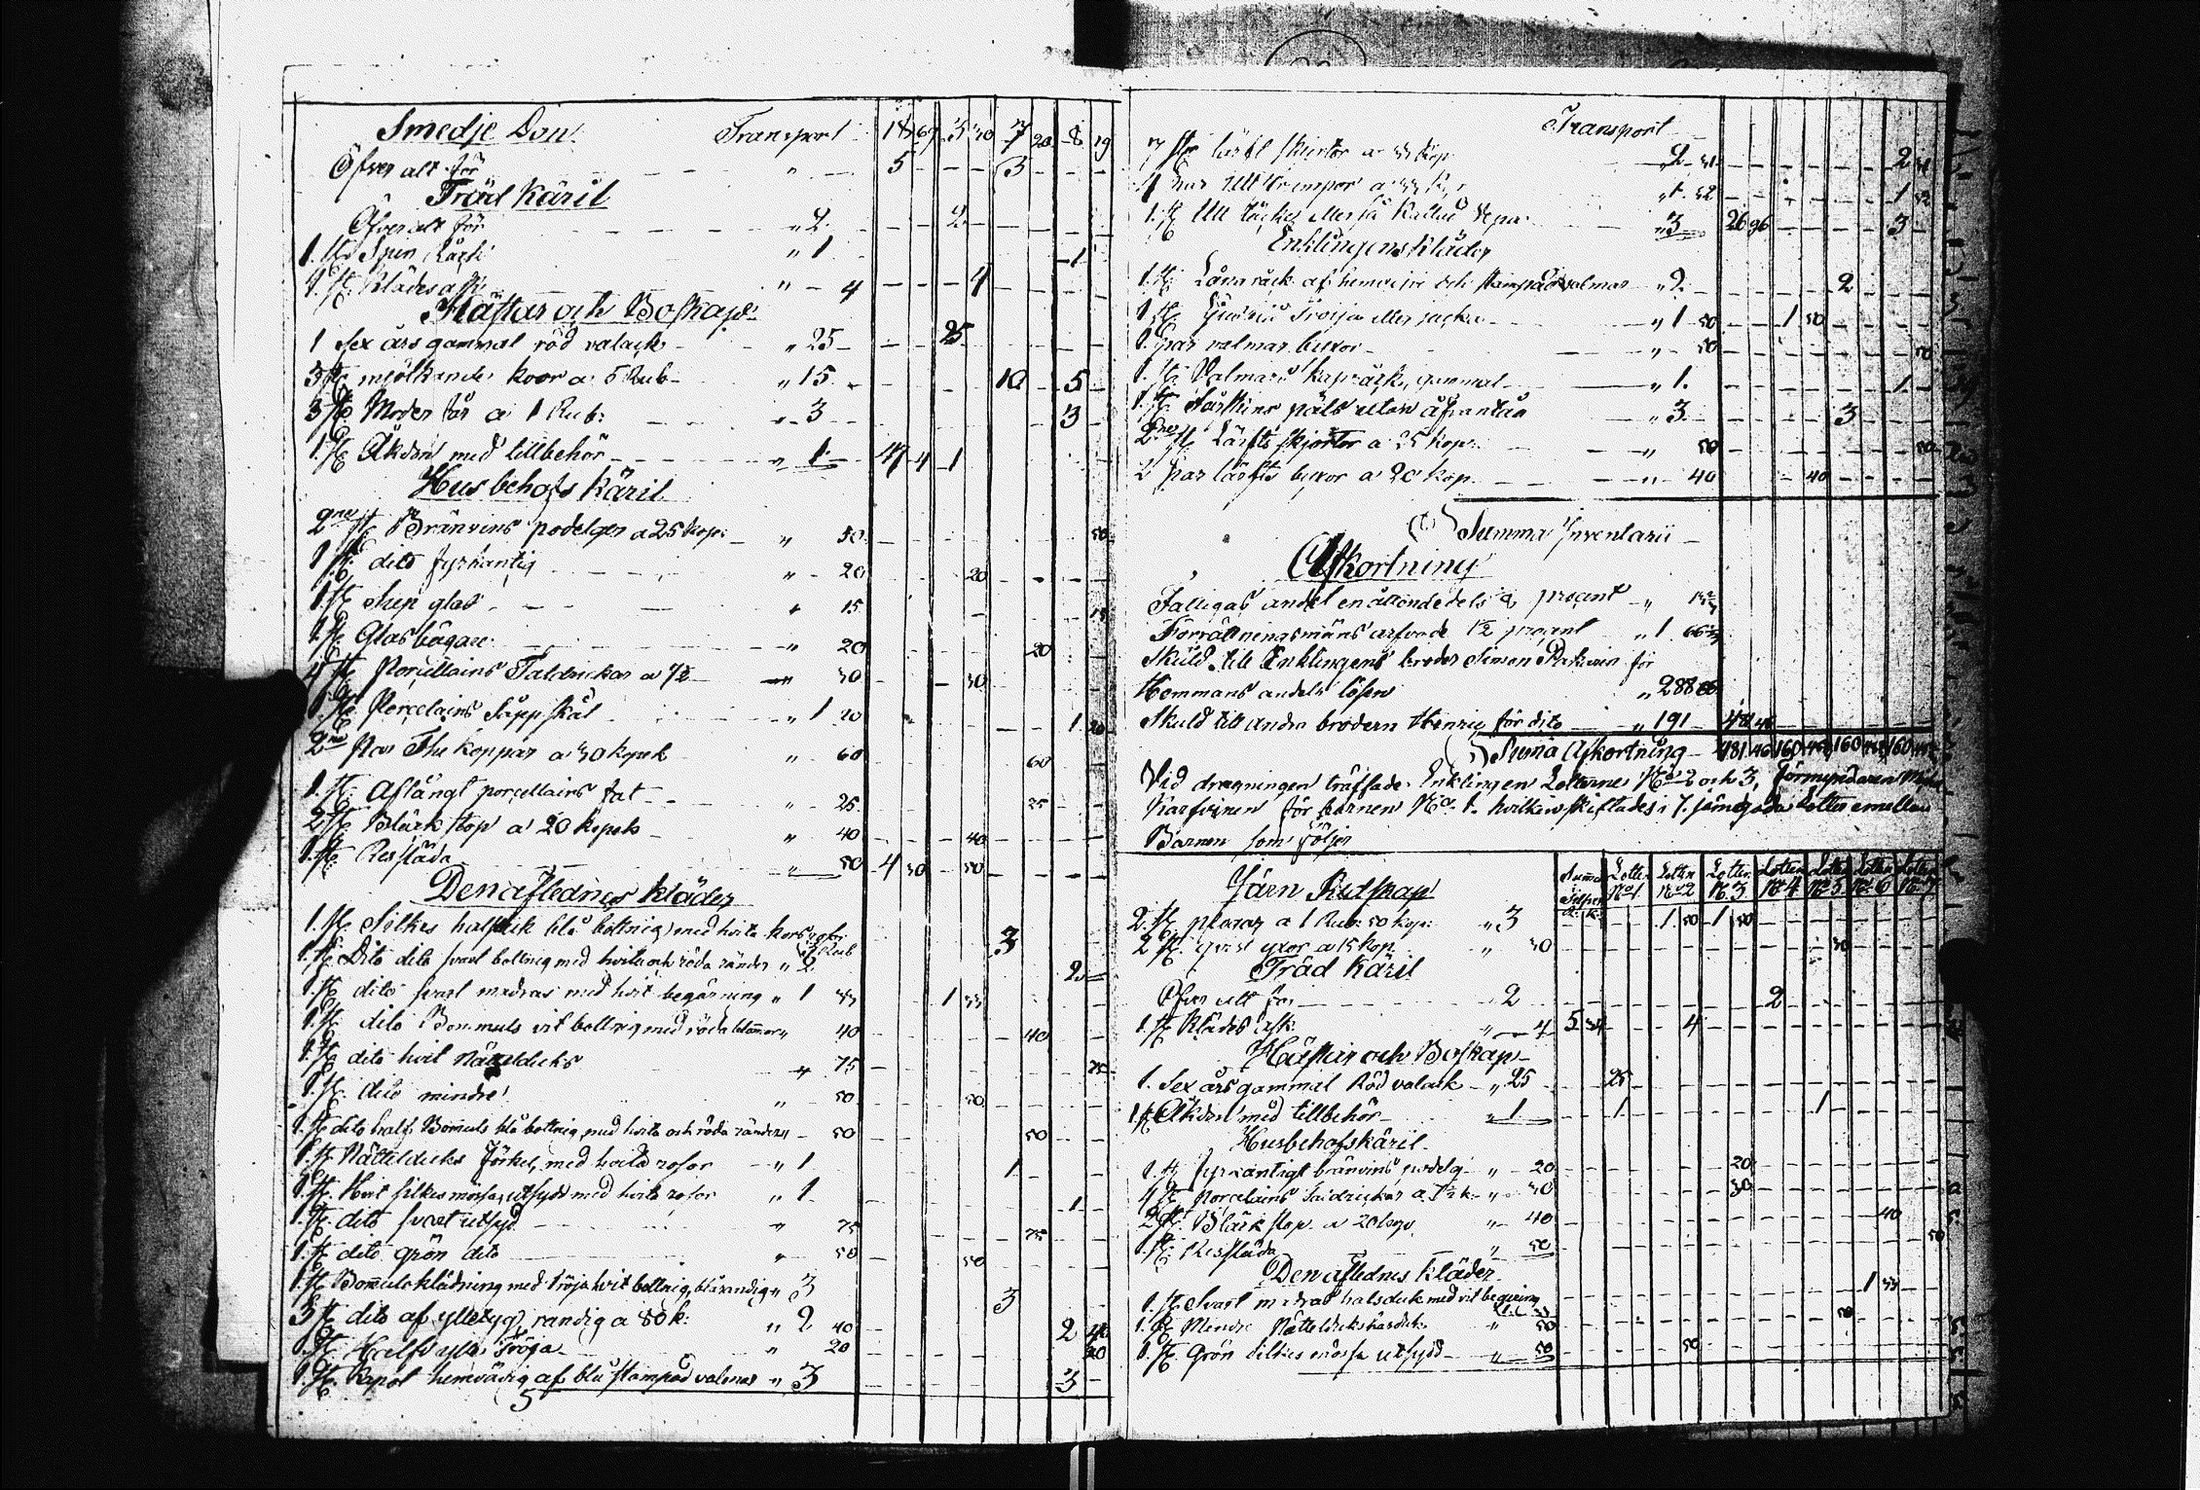 Smedje Don Transport 18 67 5 70 7 20 8 19
Öfver alt för " 5 3
Träd Käril
Öfver alt för " 2 2
1. st. Spin Råck " 1 1
1. st. Klädes ask " 4 4
Hästar och Boskap
1 Sex års gammal röd valack " 25 25
3 st. mjölkande koor a 5 Rub " 15 10 5
3 st. Moder får a 1 Rub: " 3 3
1. st. Åkdon med tillbehör " 1 47 4 1
Husbehofs Käril
2ne st. Bränvins podelger a 25 kop: " 50 50
1 st. dito fyrkantig " 20 20
1. st. glas " 15 15
1. st. Glas bägare " 20 20
4 st. Porcellains Taldrickar a 7½ " 30 30
1. st. Porcelains Såpp skål " 1 20 1 20
2ne Par The koppar a 30 kopek " 60 60
1. st. Aflångt porcellains fat " 25 25
2 st. Bläck stop a 20 kopek " 40 40
1. st. Res släda " 50 4 50 50
Den aflednes kläder
1. st. Silkes halsduk blå bottnig med hvita 3 Rub 3
1. st. Dito dito svart bottnig med hvita och röda ränder " 2 2
1. st. dito svart madras med hvit begärning " 1 33 1 33
1. st. dito Bommuls vit bottnig med röda blommor " 40 40
1. st. dito hvit Nätteldicks " 75 75
1. st. dito mindre " 50 50
1. st. dito half Bomuls blå bottnig med hvita och röda ränder " 50 50
1. st. Nätteldicks Förkel, med hvita rosor " 1 1
1. st. Hvit silkes mössa utsydd med hvita rosor " 1 1
1. st. dito svart utsyd " 75 75
1. st. dito grön dito " 50 50
1. st. Bomuls klädning med Tröja hvit bottnig, blårandig " 3 3
3 st. dito af ylletyg, randig a 80 k: " 2 40 2 40
1. st. Half ylle Tröja " 20 20
1. st. Kapot hemvävig af blå stampad valmar " 3 3
Transport
7 st. lärft skjortor a 33 kop " 2 31 2 31
4 par Ull strumpor a 33 " 1 32 1 32
1. st. Ull täcke eller så " 3 26 96 3
Enklingens Kläder
1. st. Lång råck af hemvävd och stampad valmar " 2 2
1. st. Tröija eller jacka " 1 50 1 50
1. par valmar buxor " 50 50
1. st. Valmars kapråck, gammal " 1. 1
1. st. Fårskins päls utan " 3 3
2ne st. Lärfts skjortor a 25 kop: " 50 50
2 par lärfts buxor a 20 kop. " 40 40
Summa Inventarii
Afkortning
Fattigas andel en åttondedels procent "
Förrättningsmäns arfvode 1½ procent " 1 66
Skuld till Enklingens broder Simon för
Hemmans andels lösen " 288
Skuld till andra brodern Henric för dito " 191 481 46
Suma Afkortning 481 46 160 160 160
Vid dragningen träffade Enklingen Lotterne No 2 och 3, förmyndaren
för barnen No 1. hvilken skiftades i 7. jämgoda Lotter emellan
Barnen som följer
Järn Redskap Lotten No 1 Lotten No 2 Lotten N. 3 Lotten No 4 Lotten No 5 Lotten No 6 Lotten No 7
2. st. plogar a 1 Rub: 50 kop: " 3 1 50 1 50
2 st. yxor a 15 kop. " 30 30
Träd Käril
Öfver alt för 2 2
1. st. Klädes ask " 4 5 34 4
Hästar och Boskap
1. Sex års gammal Röd valack " 25 25
1 st. Åkdon med tillbehör " 1 1 1
Husbehofskäril
1 st. fyrkantigt bränvins podelg " 20 20
4 st. Porcelains Taldrickar a 7½ k " 30 30
2 st. Bläck stop a 20 kop " 40 40
1. st. Res släda " 50 50
Den aflednes kläder
1. st. Svart madras halsduk med vit begärning 1 33
1. st. Mindre Nätteldicks " 50 50
1. st. Grön silkes mössa utsydd " 50 50